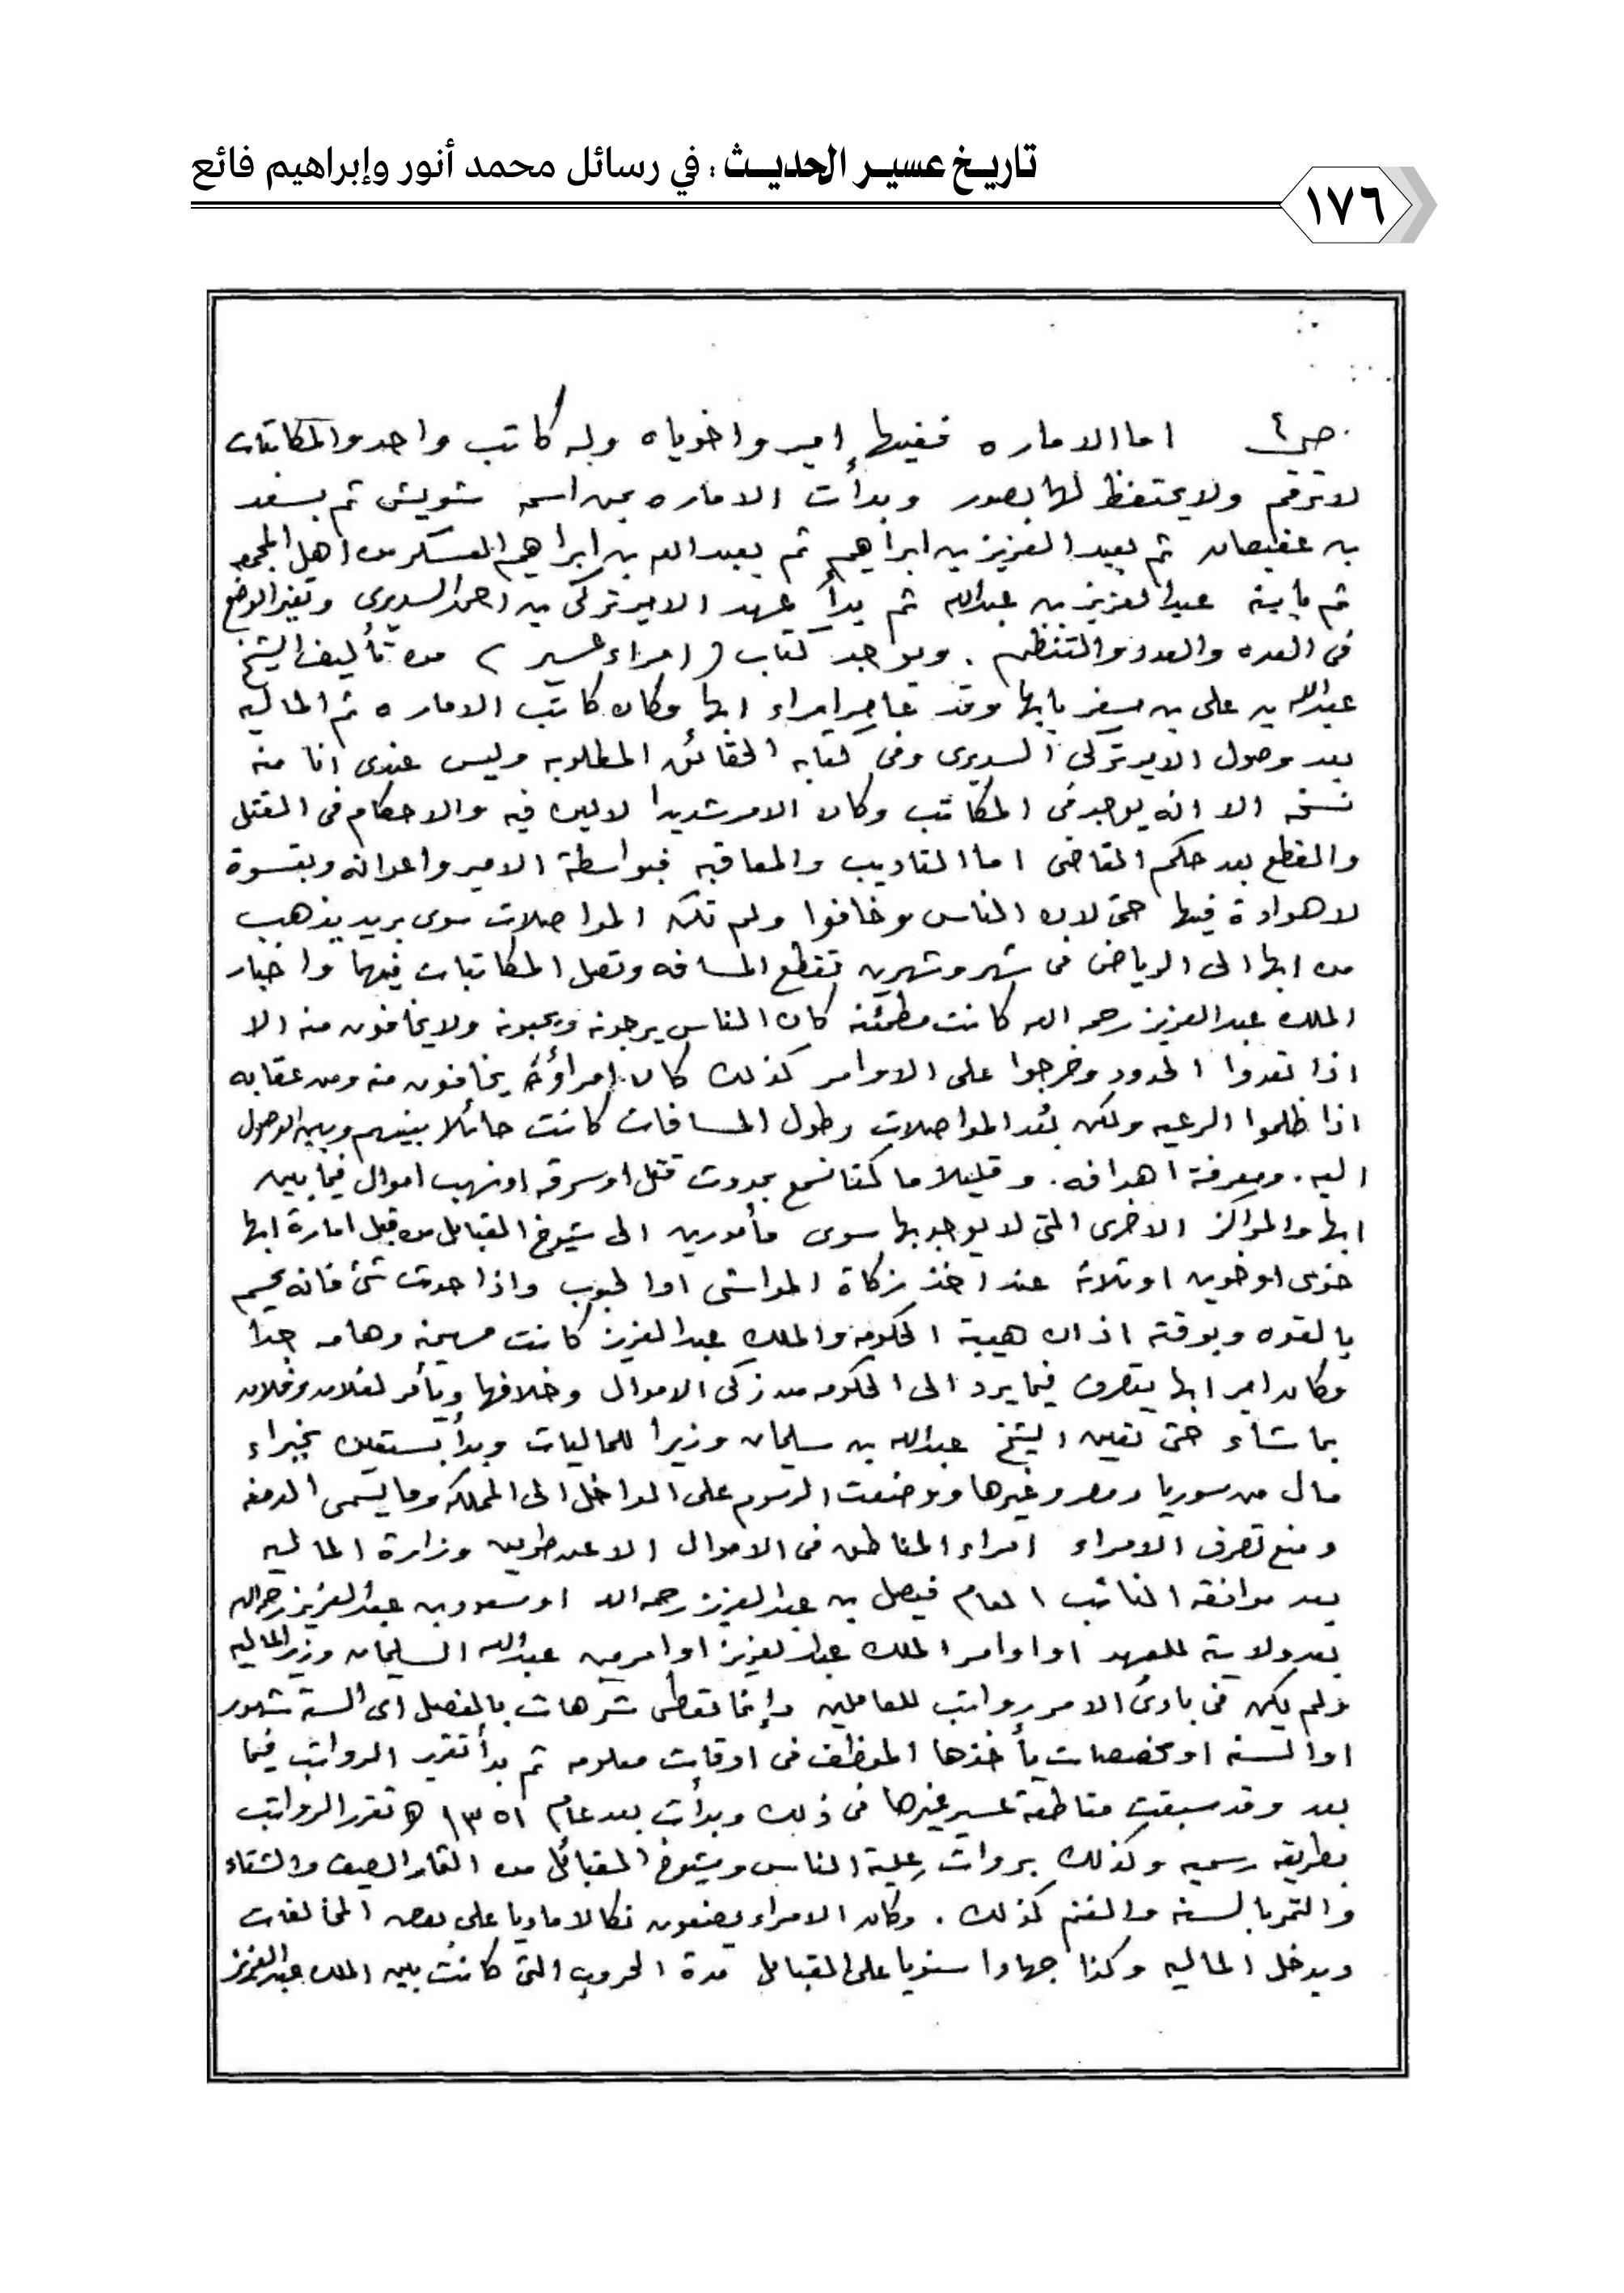 تاريخ عسير الحديث : في رسائل محمد أنور وإبراهيم فائع
١٧٦
اما الاماره ففيها امير واخوياه وله كاتب واحد والمكاتبات
لا ترقم ولا يحتفظ لها بصور وبدأت الاماره بمن اسمه شويش ثم بسعد
بن عفيصان ثم بعبد العزيز بن ابراهيم ثم بعبد الله بن ابراهيم العسكر من اهل المجمعه
ثم بابنه عبد العزيز بن عبدالله ثم بدأ عهد الامير تركي بن احمد السديري وتغير الوضع
في العده والعدد والتنظيم . ويوجد كتاب ( امراء عسير ) من تأليف الشيخ
عبدالله بن علي بن مسفر بابها وقد عاصر امراء ابها وكان كاتب الاماره ثم الماليه
بعد وصول الامير تركي السديري وفي كتابه الحقائق المطلوبه وليس عندي انا منه
نسخه الا انه يوجد في المكاتب وكان الامر شديدا لا لين فيه والاحكام في القتل
والقطع بعد حكم القاضي اما التاديب والمعاقبه فبواسطة الامير واعوانه وبقسوة
لا هوادة فيها حتى لان الناس وخافوا ولم تكن المواصلات سوى بريد يذهب
من ابها الى الرياض في شهر وشهرين تقطع المسافه وتصل المكاتبات فيهما واخبار
الملك عبدالعزيز رحمه الله كانت مطمئنه كان الناس يرجونه ويحبونه ولا يخافون منه الا
اذا تعدوا الحدود وخرجوا على الاوامر كذلك كان امراؤه يخافون منه ومن عقابه
اذا ظلموا الرعيه ولكن بُعد المواصلات وطول المسافات كانت حائلا بينهم وبين الوصول
اليه . ومعرفة اهدافه . وقليلا ما كنا نسمع بحدوث قتل او سرقه او نهب اموال فيما بين
ابها والمراكز الاخرى التي لا يوجد بها سوى مأمورين الى شيوخ القبايل من قبل امارة ابها
خوى او خوين او ثلاثه عند اخذ زكاة المواشي او الحبوب واذا حدث شئ فانه يحسم
بالقوه وبوقته اذ ان هيبة الحكومه والملك عبد العزيز كانت مهيمنه وهامه جدا
وكان امير ابها يتصرف فيما يرد الى الحكومه من زكى الاموال وخلافها ويأمر لفلان وفلان
بما شاء حتى تعين الشيخ عبدالله بن سليمان وزيرا للماليات وبدأ يستعين بخبراء
مال من سوريا ومصر وغيرها ووضعت الرسوم على الداخل الى المملكه وما يسمى الدمغه
ومنع تصرف الامراء امراء المناطق في الاموال الا عن طريق وزارة الماليه
بعد موافقه النائب العام فيصل بن عبدالعزيز رحمه الله او سعود بن عبدالعزيز رحمه الله
بعد ولاية للعهد او اوامر الملك عبدالعزيز او امر من عبدالله السليمان وزير الماليه
ولم يكن في بادئ الامر رواتب للعاملين وإنما تعطى شرهات بالفصل اي الستة شهور
او السنه او مخصصات يأخذها الموظف في اوقات معلومه ثم بدأ تقرير الرواتب فيما
بعد وقد سبقت مقاطعة عسير غيرها في ذلك وبدأت بعد عام ١٣٥١ هـ تقرر الرواتب
بطريقه رسميه وكذلك بروات علية الناس وشيوخ القبائل من الصيف والشتاء
والتمر بالسنه والغنم كذلك . وكان الامراء يضعون نكالا ماديا على بعض المخالفات
ويدخل الماليه وكذا جهادا سنويا على القبايل مدة الحروب التي كانت بين الملك عبدالعزيز